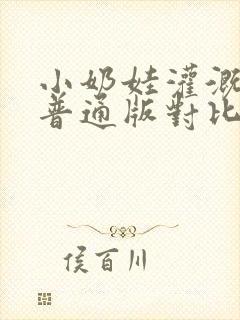 小奶娃灌溉
普通版對比
侯百川